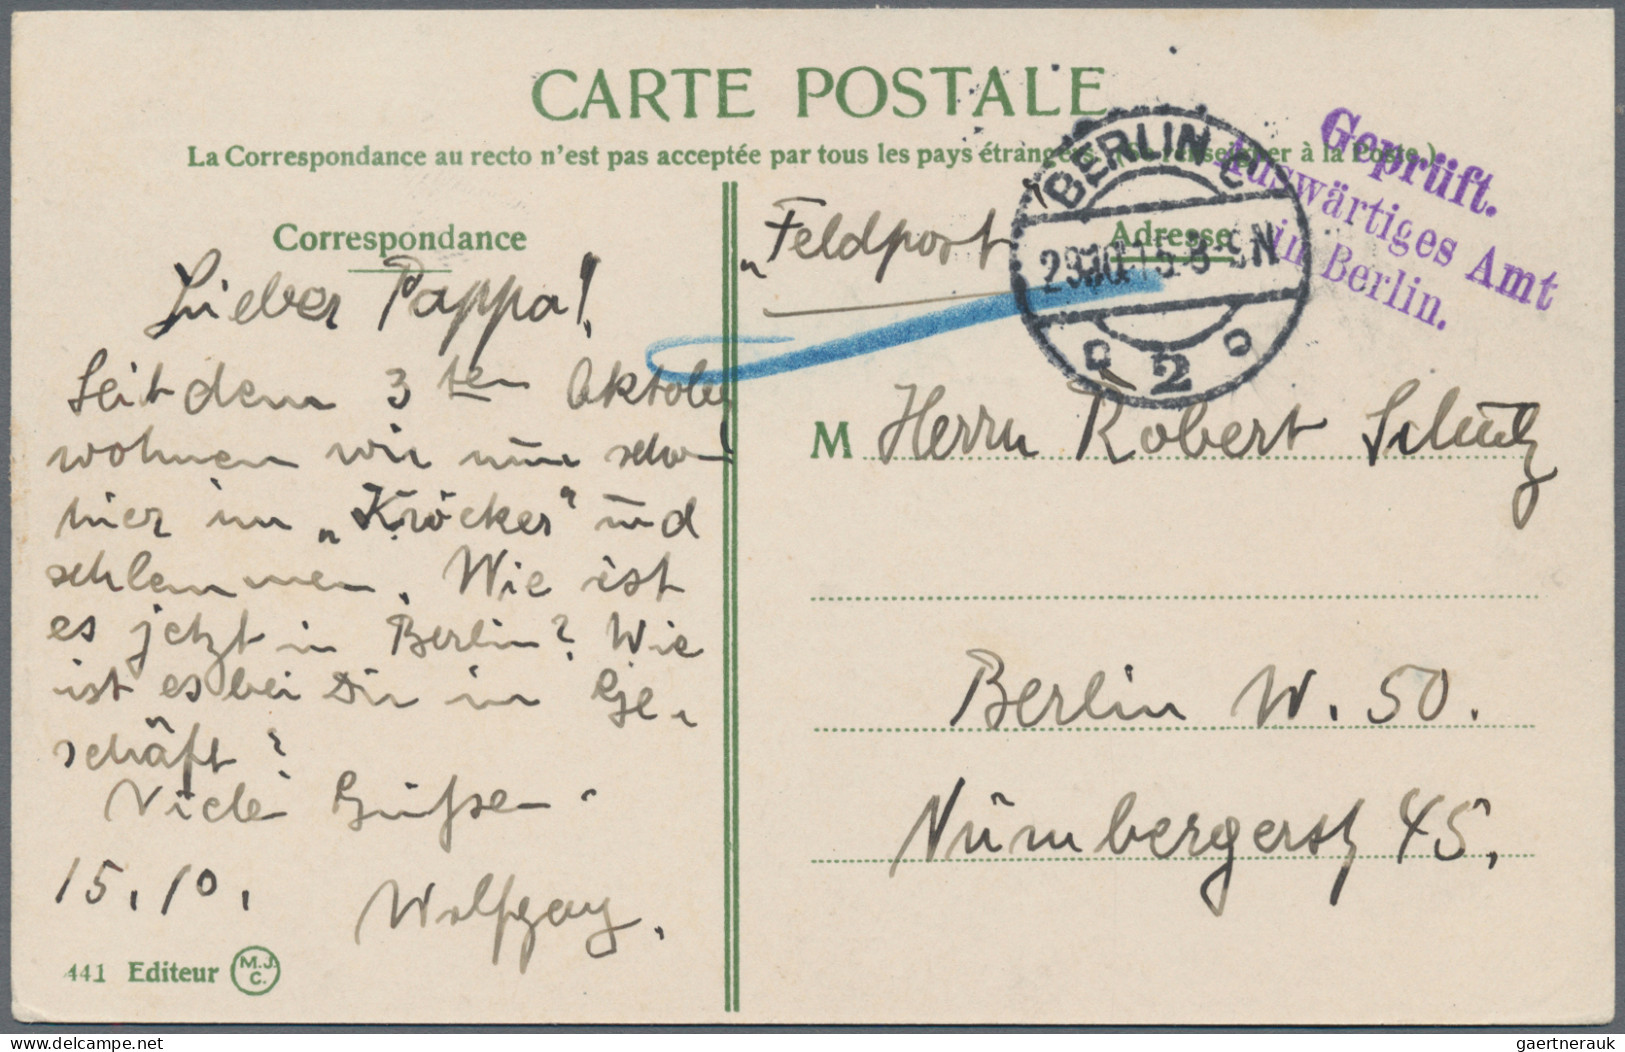 CARTE POSTALE
La Correspondance au recto n'est pas acceptée par tous les pays étrangers. (Se renseigner à la Poste.)
Correspondance
Lieber Pappa!
Seit dem 3ten Oktober
wohnen wir nun schon
hier im „Kröcker“ und
schlemmen. Wie ist
es jetzt in Berlin? Wie
ist es bei Dir im Ge-
schäft?
Viele Grüße
15.10.
Wolfgang.
441 Editeur M.J.C.
„Feldpost
Adresse
BERLIN C
29.10.15.8-9N
2
Geprüft.
Auswärtiges Amt
in Berlin.
M Herrn Robert Schultz
Berlin W. 50.
Nürnbergerstr 45.
gaertnerauk